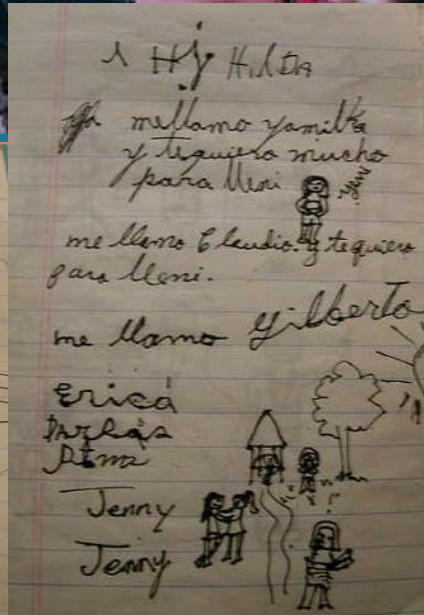 Hilda
me llamo yamilka
y te quiero mucho
para Ueni
me llamo Claudio. y te quiero
para Ueni.
me llamo Gilberto
Erica
Jenny
Jenny